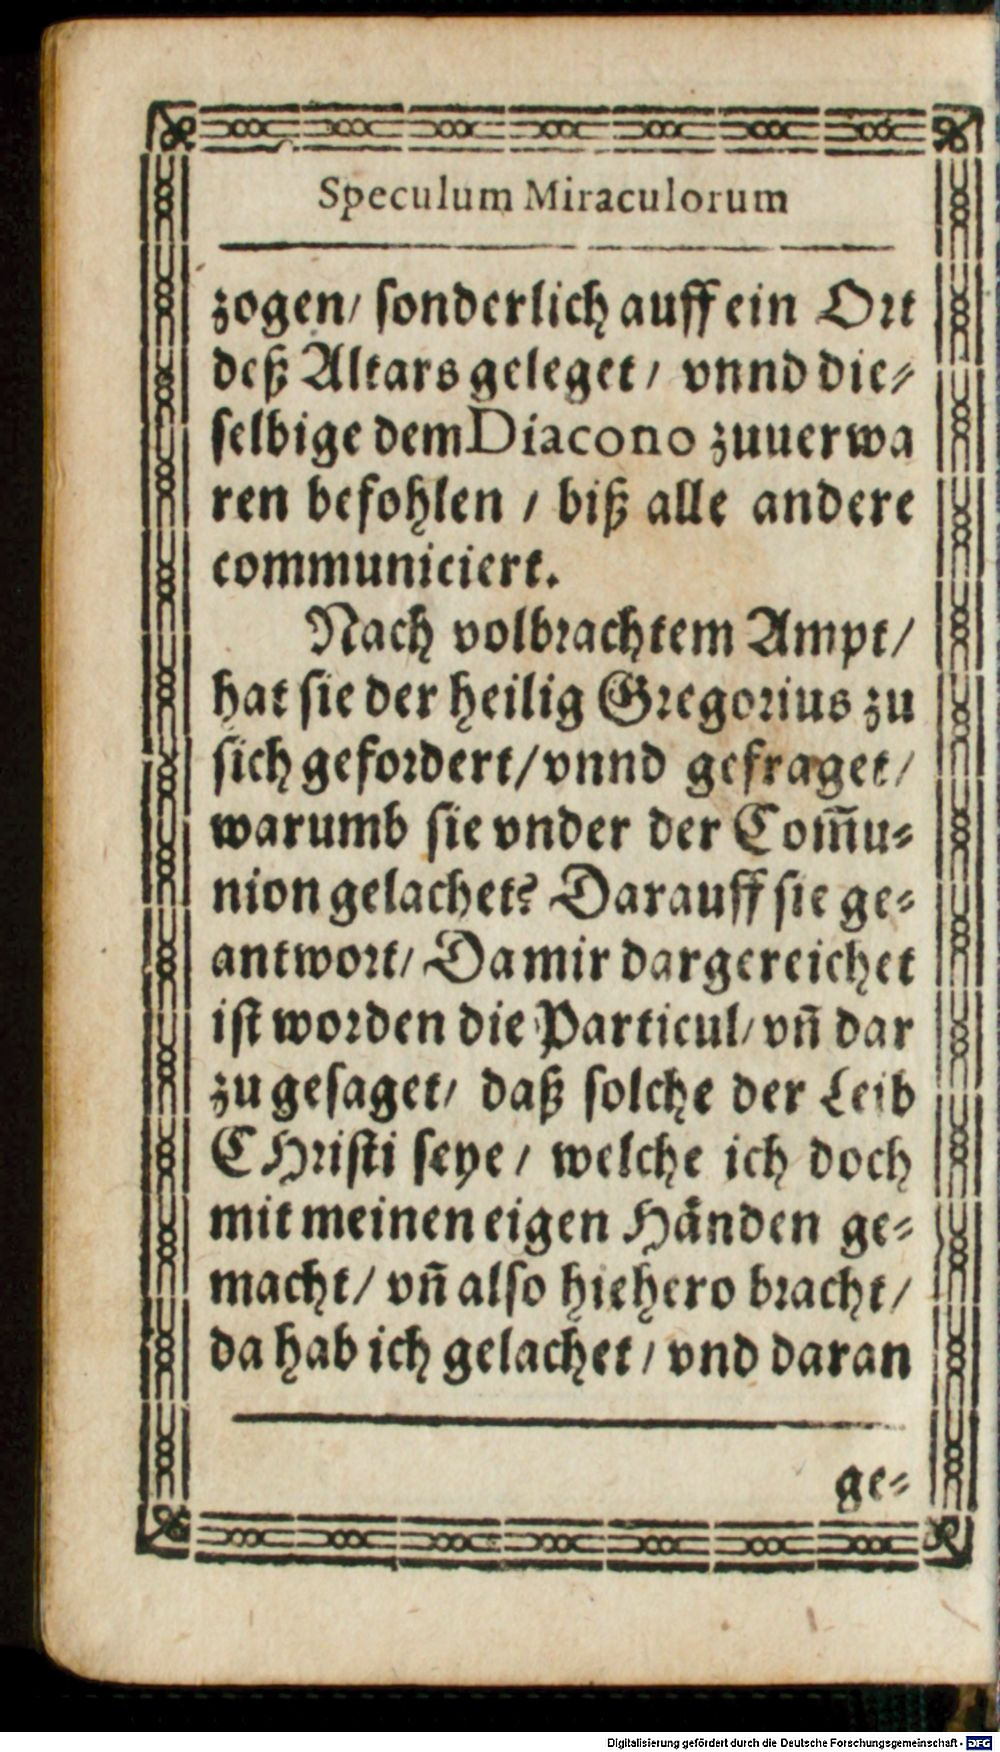 Speculum Miraculorum
zogen/ sonderlich auff ein Ort
deß Altars geleget/ vnnd die⸗
selbige dem Diacono zuuerwa
ren befohlen / biß alle andere
communiciert.
Nach volbrachtem Ampt/
hat sie der heilig Gregorius zu
sich gefordert/ vnnd gefraget/
warumb sie vnder der Com̄u⸗
nion gelachet? Darauff sie ge⸗
antwort/ Da mir dargereichet
ist worden die Particul/ vn̄ dar
zu gesaget/ daß solche der Leib
CHristi seye/ welche ich doch
mit meinen eigen Händen ge⸗
macht/ vn̄ also hiehero bracht/
da hab ich gelachet/ vnd daran
ge⸗
Digitalisierung gefördert durch die Deutsche Forschungsgemeinschaft - DFG